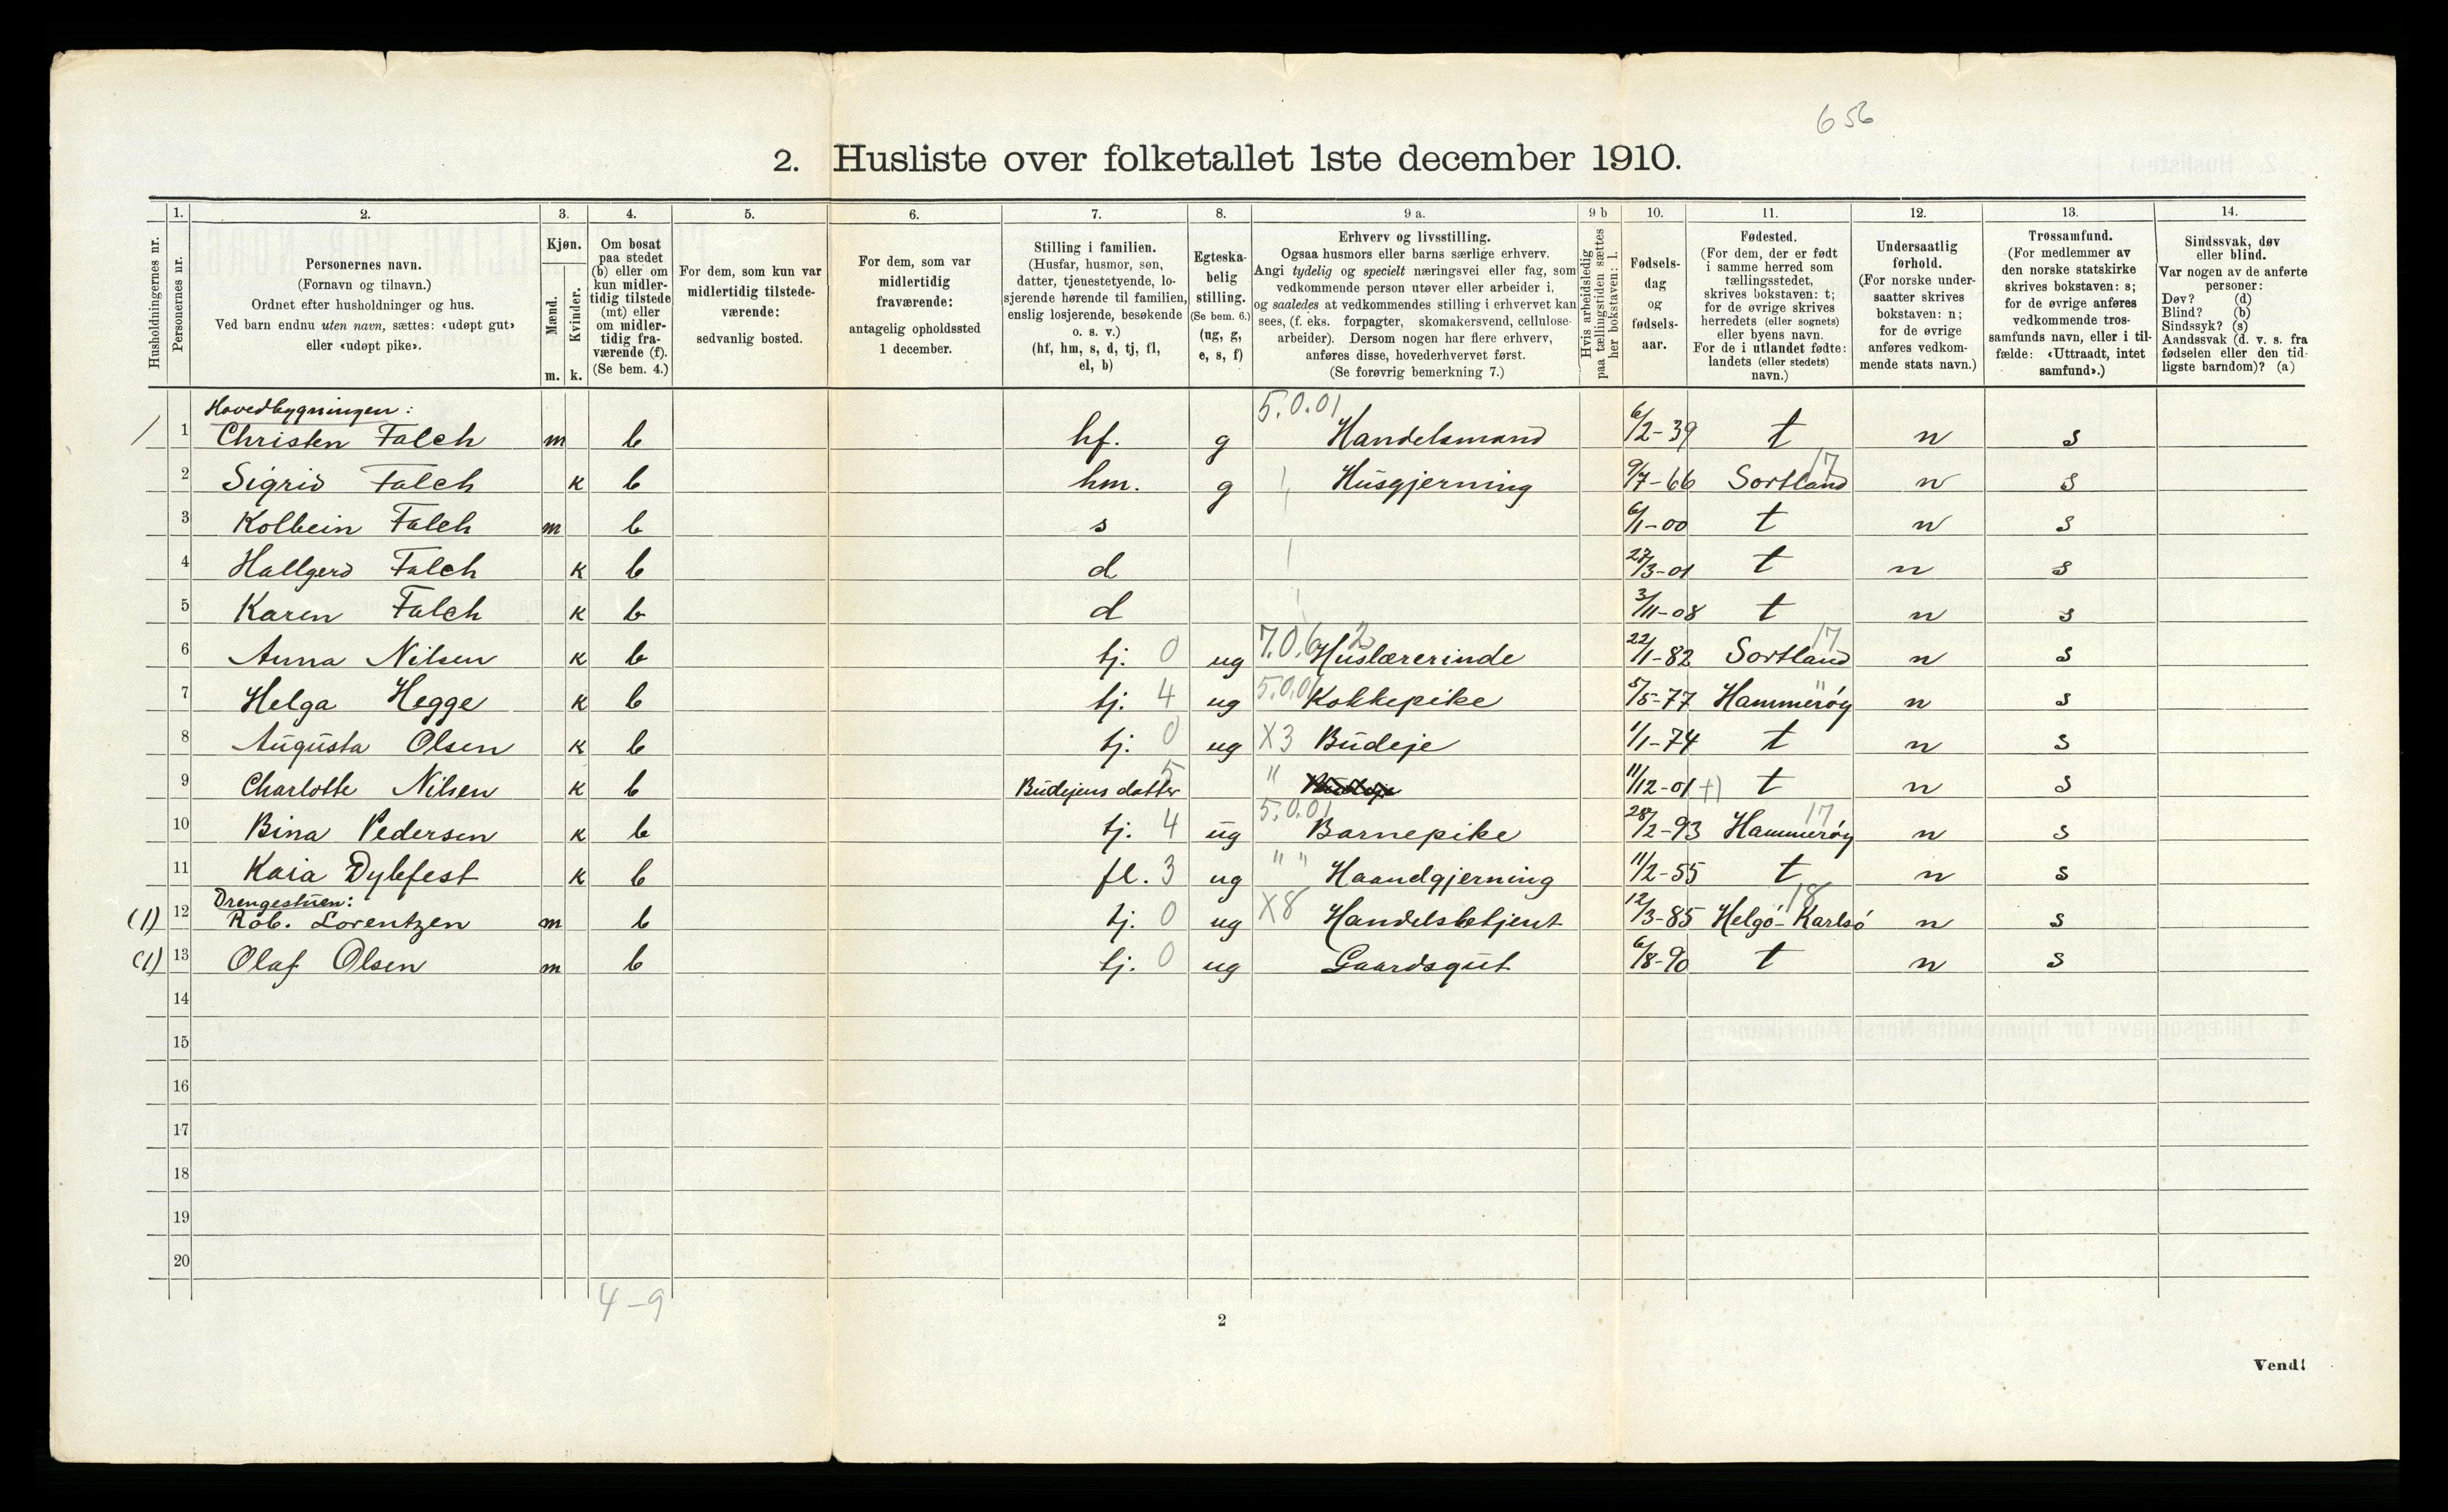 656
2. Husliste over folketallet 1ste december 1910.
Husholdningernes nr.
1. 2. 3. 4. 5. 6. 7. 8. 9 a. 9 b 10. 11. 12. 13. 14.
Personernes nr.
Personernes navn.
(Fornavn og tilnavn.)
Ordnet efter husholdninger og hus.
Ved barn endnu uten navn, sættes: «udøpt gut»
eller «udøpt pike».
Kjøn.
Mænd.
Kvinder.
m. k.
Om bosat
paa stedet
(b) eller om
kun midler-
tidig tilstede
(mt) eller
om midler-
tidig fra-
værende (f).
(Se bem. 4.)
For dem, som kun var
midlertidig tilstede-
værende:
sedvanlig bosted.
For dem, som var
midlertidig
fraværende:
antagelig opholdssted
1 december.
Stilling i familien.
(Husfar, husmor, søn,
datter, tjenestetyende, lo-
sjerende hørende til familien,
enslig losjerende, besøkende
o. s. v.)
(hf, hm, s, d, tj, fl,
el, b)
Egteska-
belig
stilling.
(Se bem. 6.)
(ug, g,
e, s, f)
Erhverv og livsstilling.
Ogsaa husmors eller barns særlige erhverv.
Angi tydelig og specielt næringsvei eller fag, som
vedkommende person utøver eller arbeider i,
og saaledes at vedkommendes stilling i erhvervet kan
sees, (f. eks. forpagter, skomakersvend, cellulose-
arbeider). Dersom nogen har flere erhverv,
anføres disse, hovederhvervet først.
(Se forøvrig bemerkning 7.)
Hvis arbeidsledig
paa tællingstiden sættes
her bokstaven: l.
Fødsels-
dag
og
fødsels-
aar.
Fødested.
(For dem, der er født
i samme herred som
tællingsstedet,
skrives bokstaven: t;
for de øvrige skrives
herredets (eller sognets)
eller byens navn.
For de i utlandet fødte:
landets (eller stedets)
navn.)
Undersaatlig
forhold.
(For norske under-
saatter skrives
bokstaven: n;
for de øvrige
anføres vedkom-
mende stats navn.)
Trossamfund.
(For medlemmer av
den norske statskirke
skrives bokstaven: s;
for de øvrige anføres
vedkommende tros-
samfunds navn, eller i til-
fælde: «Uttraadt, intet
samfund».)
Sindssvak, døv
eller blind.
Var nogen av de anførte
personer:
Døv? (d)
Blind? (b)
Sindssyk? (s)
Aandssvak (d. v. s. fra
fødselen eller den tid-
ligste barndom)? (a)
Hovedbygningen: 5.0.01
/ 1 Christen Falch m b hf. g Handelsmand 6/2-39 t n s
2 Sigrid Falch k b hm. g Husgjerning 9/7-66 Sortland 17 n s
3 Kolbein Falch m b s 6/1-00 t n s
4 Hallgerd Falch k b d 27/3-01 t n s
5 Karen Falch k b d 3/11-08 t n s
6 Anna Nilsen k b tj. 0 ug 7.0.6 2 Huslærerinde 22/1-82 Sortland 17 n s
7 Helga Hegge k b tj. 4 ug 5.0.01 Kokkepike 5/5-77 Hammerøy " n s
8 Augusta Olsen k b tj. 0 ug X3 Budeje 1/1-74 t n s
9 Charlotte Nilsen k b Budejens datter 5 " 11/12-01 +) t n s
10 Bina Pedersen k b tj. 4 ug 5.0.01 Barnepike 28/2-93 Hammerøy 17 n s
11 Kaia Dybfest k b fl. 3 ug " " Haandgjerning 11/2-55 t n s
Drengestuen:
(1) 12 Rob. Lorentzen m b tj. 0 ug X8 Handelsbetjent 12/3-85 Helgø-Karlsø 18 n s
(1) 13 Olaf Olsen m b tj. 0 ug Gaardsgut 6/8-90 t n s
14
15
16
17
18
19
20
4-9
2
Vend!